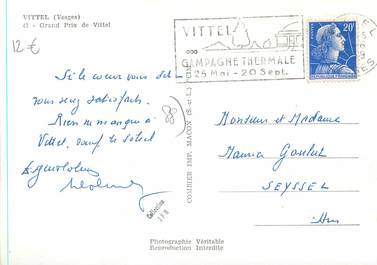 VITTEL (Vosges)
47 - Grand Prix de Vittel
12 €
Si le cœur vous dit
vous serez satisfaits.
Rien ne manque à
Vittel, sauf le soleil
88
COMBIER IMP. MACON (S.-et-L.) "CIM"
VITTEL
CAMPAGNE THERMALE
25 Mai - 20 Sept.
20F
Monsieur et Madame
Maurice
SEYSSEL
Ain
Collection
Photographie Véritable
Reproduction Interdite